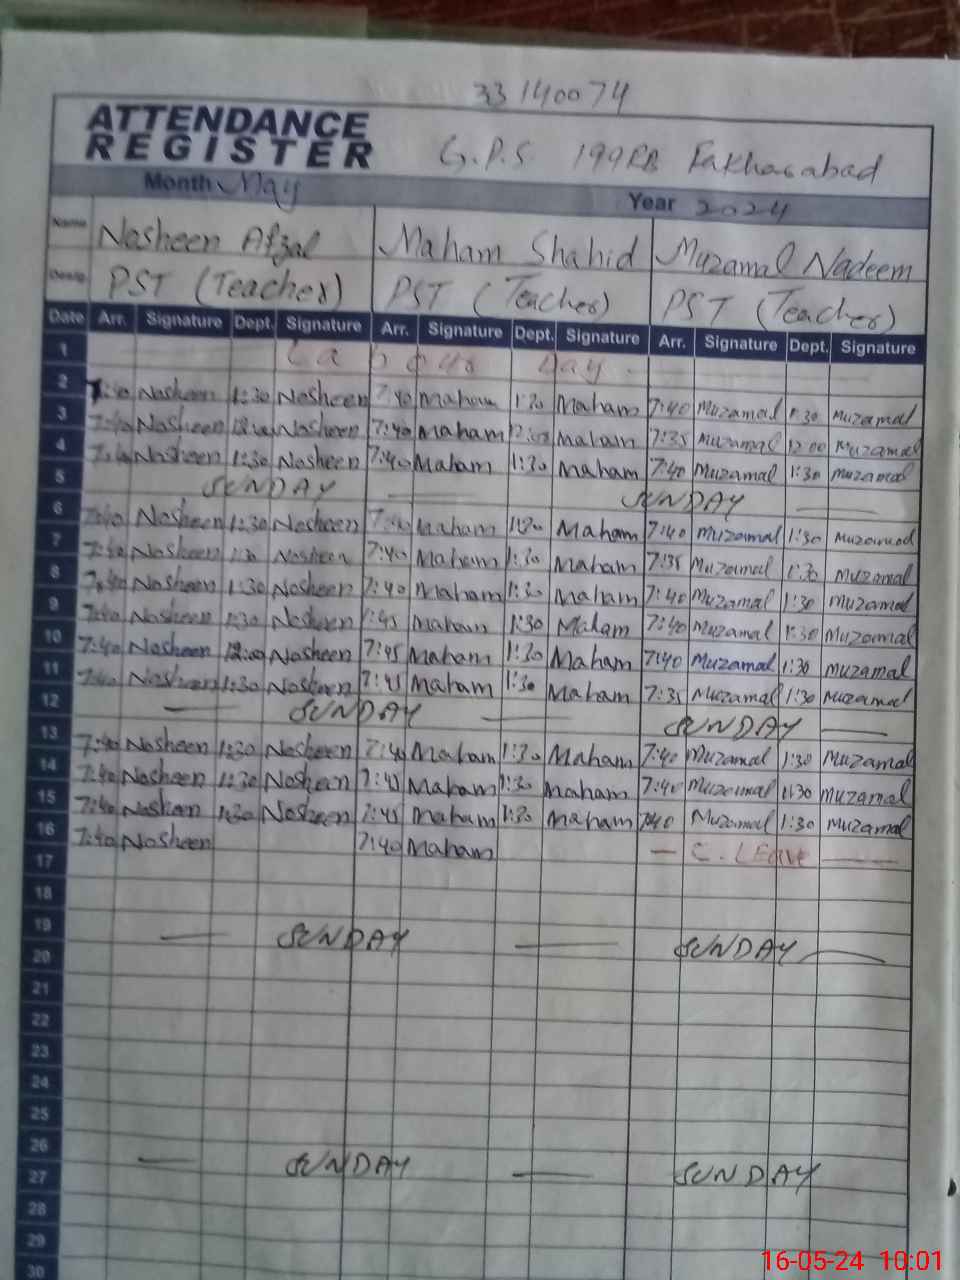 33140074
ATTENDANCE
REGISTER
G.P.S 199RB Fakharabad
Month May Year 2024
Name Nosheen Afzal Maham Shahid Muzamal Nadeem
Desig PST (Teacher) PST (Teacher) PST (Teacher)
Date Arr. Signature Dept. Signature Arr. Signature Dept. Signature Arr. Signature Dept. Signature
1 Labour Day
2 7:40 Nosheen 1:30 Nosheen 7:40 Maham 1:30 Maham 7:40 Muzamal 1:30 Muzamal
3 7:40 Nosheen 12:00 Nosheen 7:40 Maham 12:00 Maham 7:35 Muzamal 12:00 Muzamal
4 7:40 Nosheen 1:30 Nosheen 7:40 Maham 1:30 Maham 7:40 Muzamal 1:30 Muzamal
5 SUNDAY SUNDAY
6 7:40 Nosheen 1:30 Nosheen 7:40 Maham 1:30 Maham 7:40 Muzamal 1:30 Muzamal
7 7:40 Nosheen 1:30 Nosheen 7:40 Maham 1:30 Maham 7:35 Muzamal 1:30 Muzamal
8 7:40 Nosheen 1:30 Nosheen 7:40 Maham 1:30 Maham 7:40 Muzamal 1:30 Muzamal
9 7:40 Nosheen 1:30 Nosheen 7:45 Maham 1:30 Maham 7:40 Muzamal 1:30 Muzamal
10 7:40 Nosheen 12:00 Nosheen 7:45 Maham 1:30 Maham 7:40 Muzamal 1:30 Muzamal
11 7:40 Nosheen 1:30 Nosheen 7:45 Maham 1:30 Maham 7:35 Muzamal 1:30 Muzamal
12 SUNDAY SUNDAY
13 7:40 Nosheen 1:30 Nosheen 7:40 Maham 1:30 Maham 7:40 Muzamal 1:30 Muzamal
14 7:40 Nosheen 1:30 Nosheen 7:45 Maham 1:30 Maham 7:40 Muzamal 1:30 Muzamal
15 7:40 Nosheen 1:30 Nosheen 7:45 Maham 1:30 Maham 7:40 Muzamal 1:30 Muzamal
16 7:40 Nosheen 7:40 Maham C. LEave
17
18
19 SUNDAY SUNDAY
20
21
22
23
24
25
26 SUNDAY SUNDAY
27
28
29
30
16-05-24 10:01